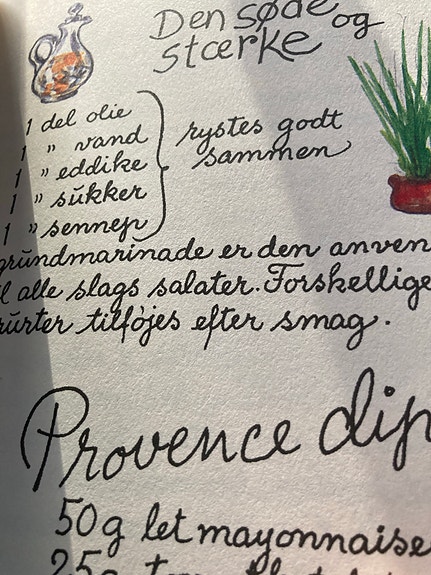 Den søde og
stærke
1 del olie
1 " vand
1 " eddike
1 " sukker
1 " sennep
rystes godt
sammen
grundmarinade er den anven
l alle slags salater. Forskellige
rurter tilføjes efter smag.
Provence dip
50g let mayonnaise
25g